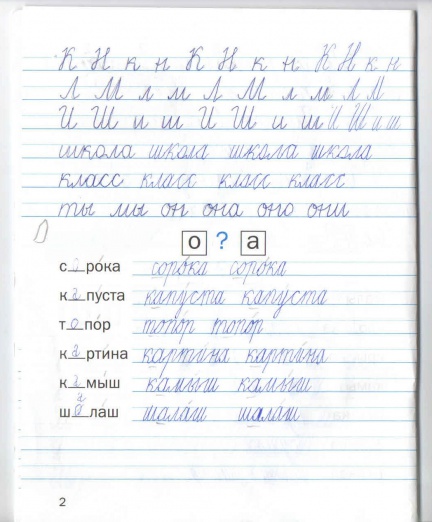 К Н к н К Н к н К Н к н
Л М л м Л М л м Л М
И Ш и ш И Ш и ш И Ш и ш
школа школа школа школа
класс класс класс класс
ты мы он она оно они
о ? а
с о рóка сорóка сорóка
к а пýста капýста капуста
т о пóр топóр топóр
к а ртѝна картѝна картѝна
к а мы́ш камы́ш камы́ш
ш а лáш шалáш шалáш
2